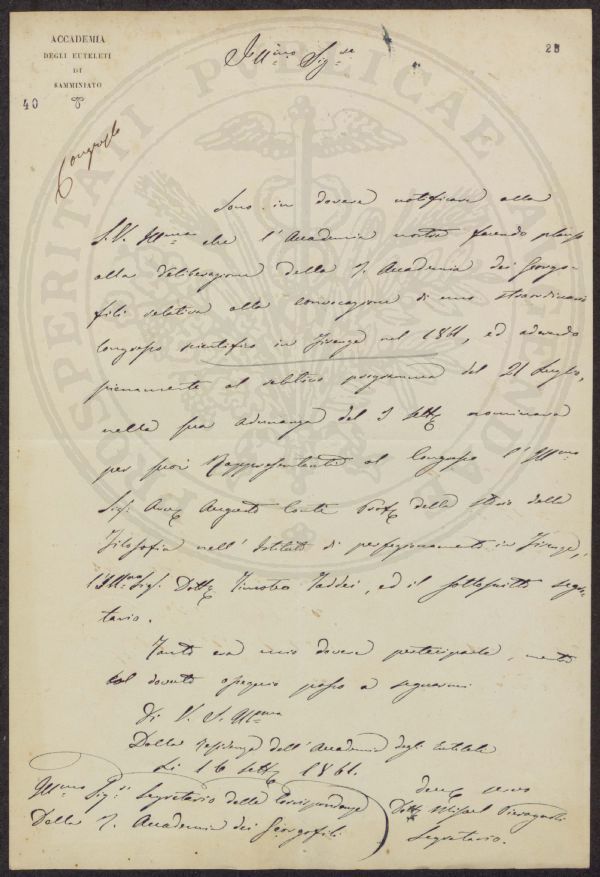 ACCADEMIA
DEGLI EUTELETI
DI
SAMMINIATO
40
28
Ill.mo Sig.re
Congresso
Sono in dovere notificare alla
S.V. Ill.ma che l'Accademia nostra facendo plauso
alla deliberazione della R. Accademia dei Georgo-
fili relativa alla convocazione di uno straordinario
Congresso scientifico in Firenze nel 1861, ed aderendo
pienamente al relativo programma del 21 Luglio,
nella sua adunanza del 5 Sett. nominava
per suoi Rappresentanti al Congresso l'Ill.mo
Sig. Avv. Augusto Conti Prof. della storia della
Filosofia nell'Istituto di perfezionamento in Firenze,
l'Ill.mo Sig. Dott. Timoteo Taddei, ed il sottoscritto segre-
tario.
Tanto era mio dovere parteciparle, mentre
col dovuto ossequio passo a segnarmi
Di V. S. Ill.ma
Dalla residenza dell'Accademia degli Euteleti
Li 16 Sett. 1861.
Ill.mo Sig. Segretario delle Corrispondenze
Della R. Accademia dei Georgofili
Dev. servo
Dott. Pieragnoli
Segretario.
PROSPERITATI PUBLICAE AUGENDAE